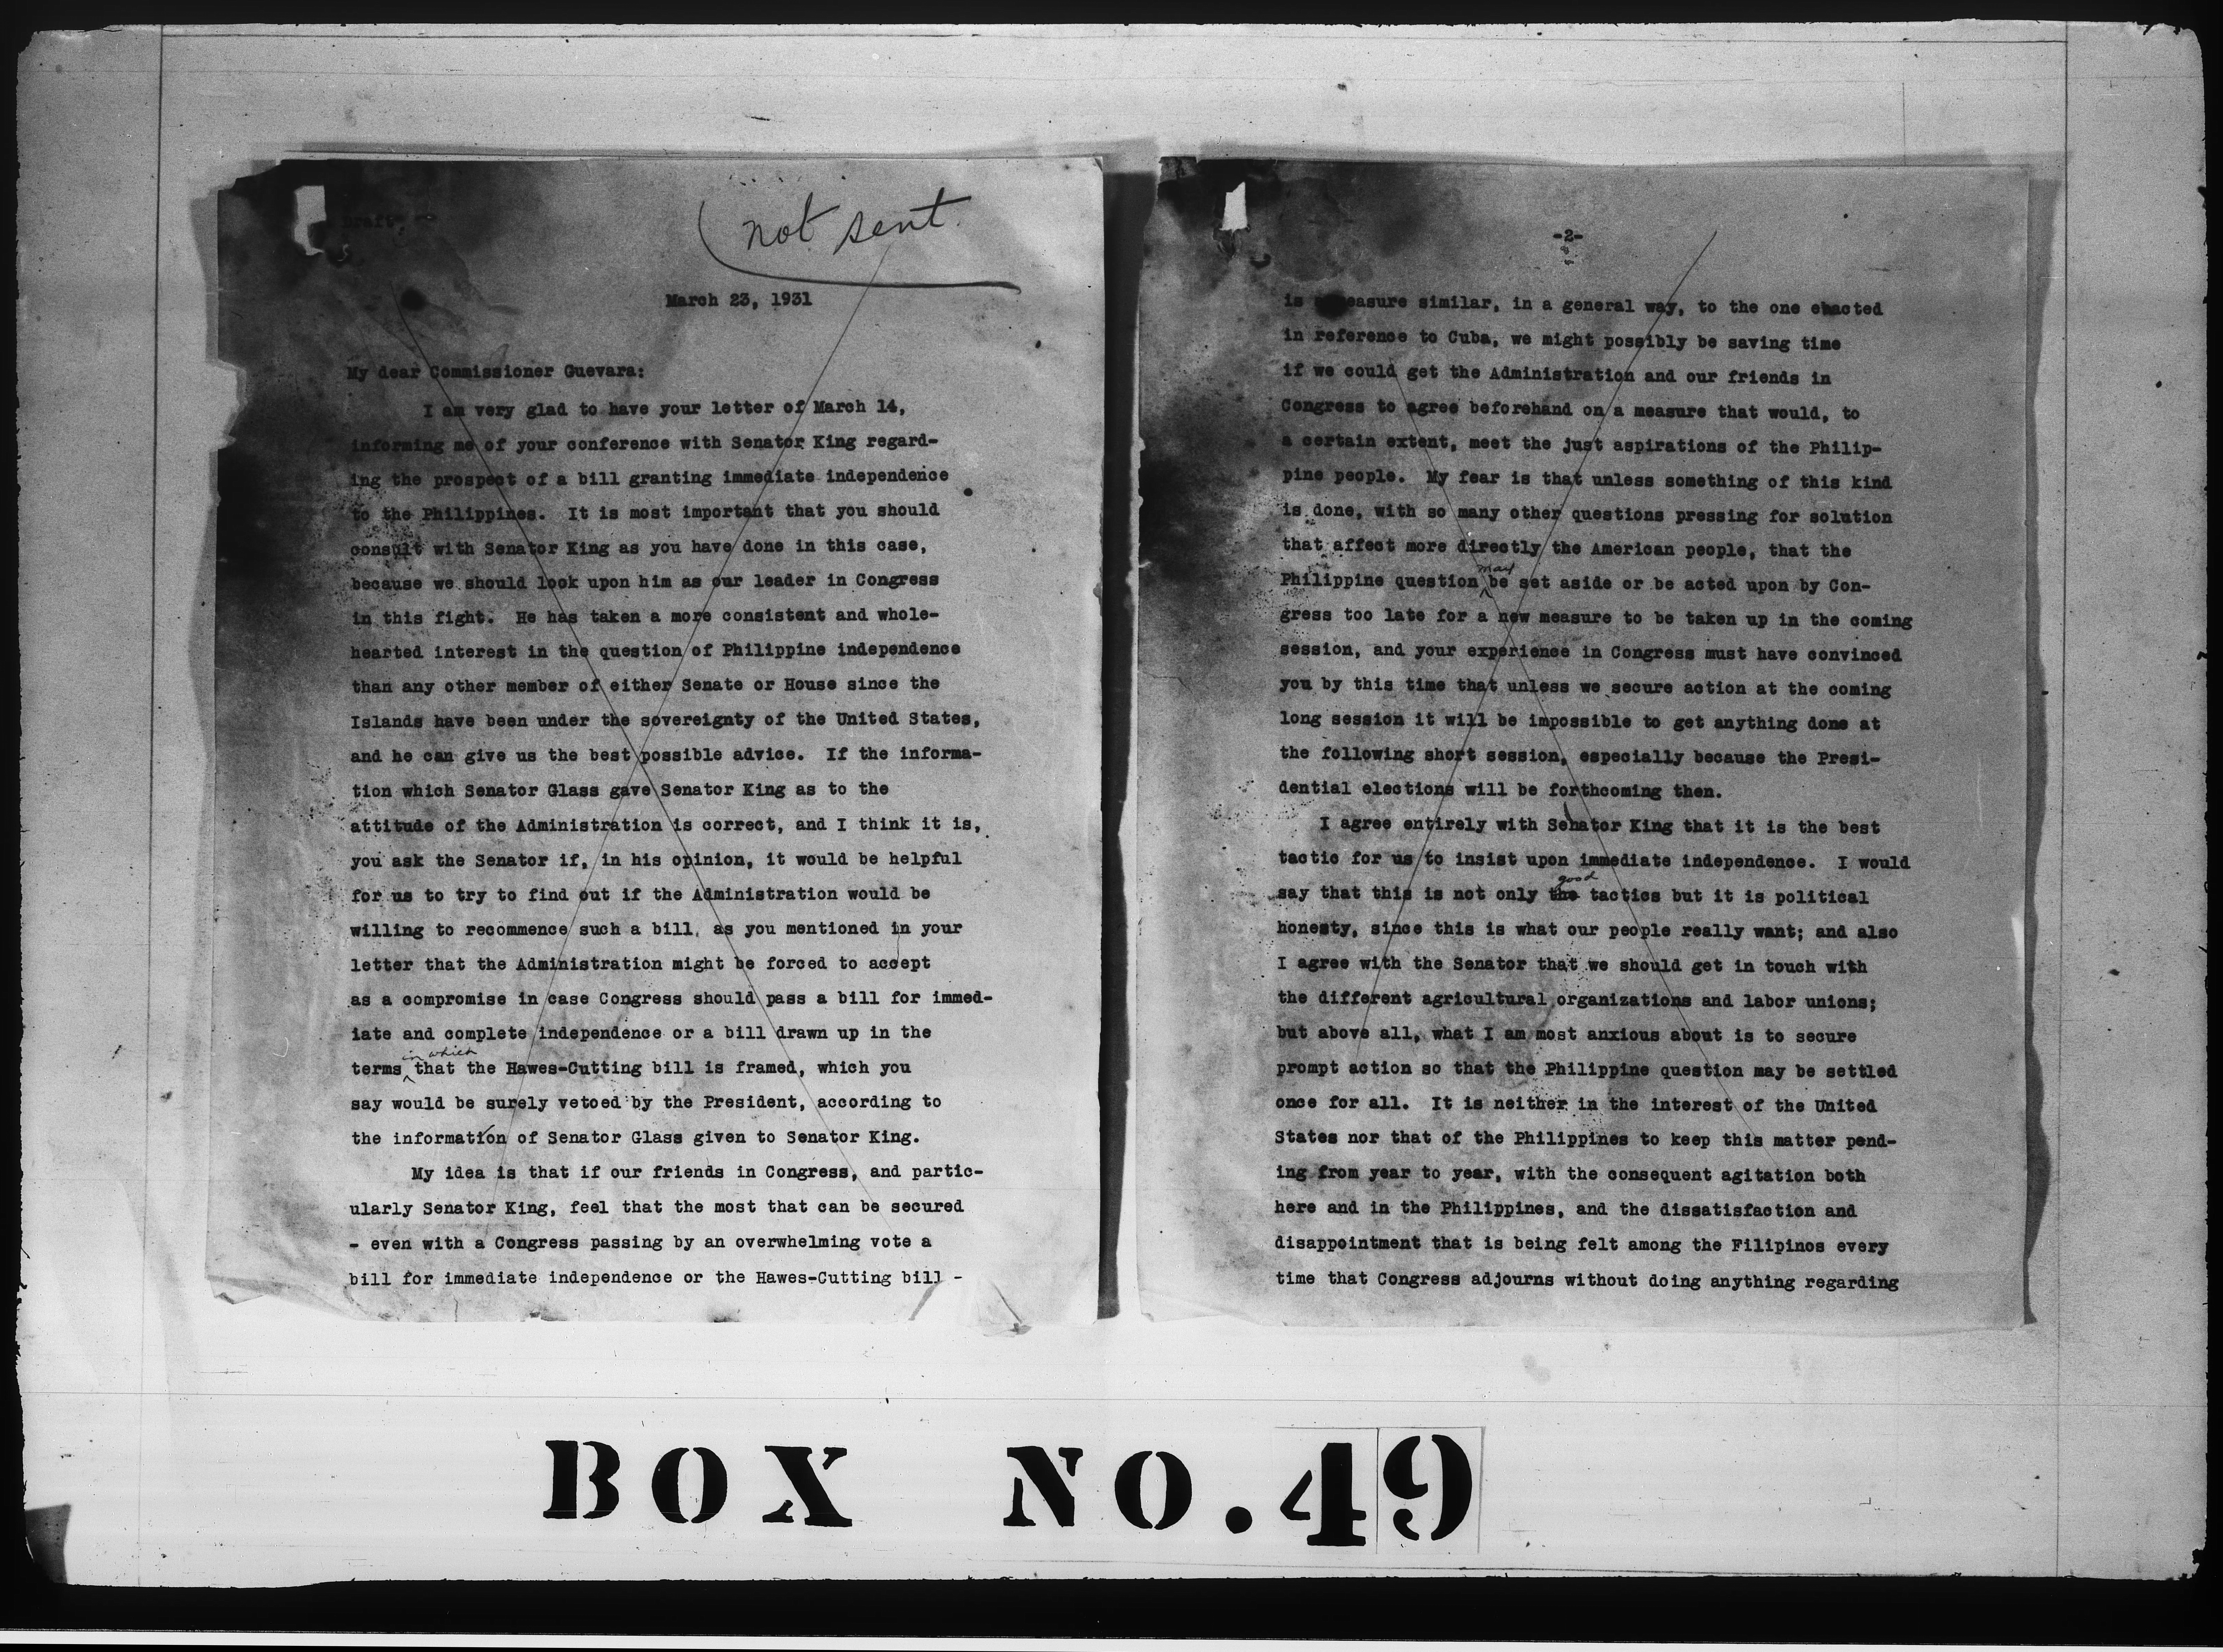 Draft
not sent
March 23, 1931
My dear Commissioner Guevara:
I am very glad to have your letter of March 14,
informing me of your conference with Senator King regard-
ing the prospect of a bill granting immediate independence
to the Philippines. It is most important that you should
consult with Senator King as you have done in this case,
because we should look upon him as our leader in Congress
in this fight. He has taken a more consistent and whole-
hearted interest in the question of Philippine independence
than any other member of either Senate or House since the
Islands have been under the sovereignty of the United States,
and he can give us the best possible advice. If the informa-
tion which Senator Glass gave Senator King as to the
attitude of the Administration is correct, and I think it is,
you ask the Senator if, in his opinion, it would be helpful
for us to try to find out if the Administration would be
willing to recommence such a bill, as you mentioned in your
letter that the Administration might be forced to accept
as a compromise in case Congress should pass a bill for immed-
iate and complete independence or a bill drawn up in the
in which
terms that the Hawes-Cutting bill is framed, which you
say would be surely vetoed by the President, according to
the information of Senator Glass given to Senator King.
My idea is that if our friends in Congress, and partic-
ularly Senator King, feel that the most that can be secured
- even with a Congress passing by an overwhelming vote a
bill for immediate independence or the Hawes-Cutting bill -
-2-
is a measure similar, in a general way, to the one enacted
in reference to Cuba, we might possibly be saving time
if we could get the Administration and our friends in
Congress to agree beforehand on a measure that would, to
a certain extent, meet the just aspirations of the Philip-
pine people. My fear is that unless something of this kind
is done, with so many other questions pressing for solution
that affect more directly the American people, that the
may
Philippine question be set aside or be acted upon by Con-
gress too late for a new measure to be taken up in the coming
session, and your experience in Congress must have convinced
you by this time that unless we secure action at the coming
long session it will be impossible to get anything done at
the following short session, especially because the Presi-
dential elections will be forthcoming then.
I agree entirely with Senator King that it is the best
tactic for us to insist upon immediate independence. I would
good
say that this is not only the tactics but it is political
honesty, since this is what our people really want; and also
I agree with the Senator that we should get in touch with
the different agricultural organizations and labor unions;
but above all, what I am most anxious about is to secure
prompt action so that the Philippine question may be settled
once for all. It is neither in the interest of the United
States nor that of the Philippines to keep this matter pend-
ing from year to year, with the consequent agitation both
here and in the Philippines, and the dissatisfaction and
disappointment that is being felt among the Filipinos every
time that Congress adjourns without doing anything regarding
BOX NO. 49